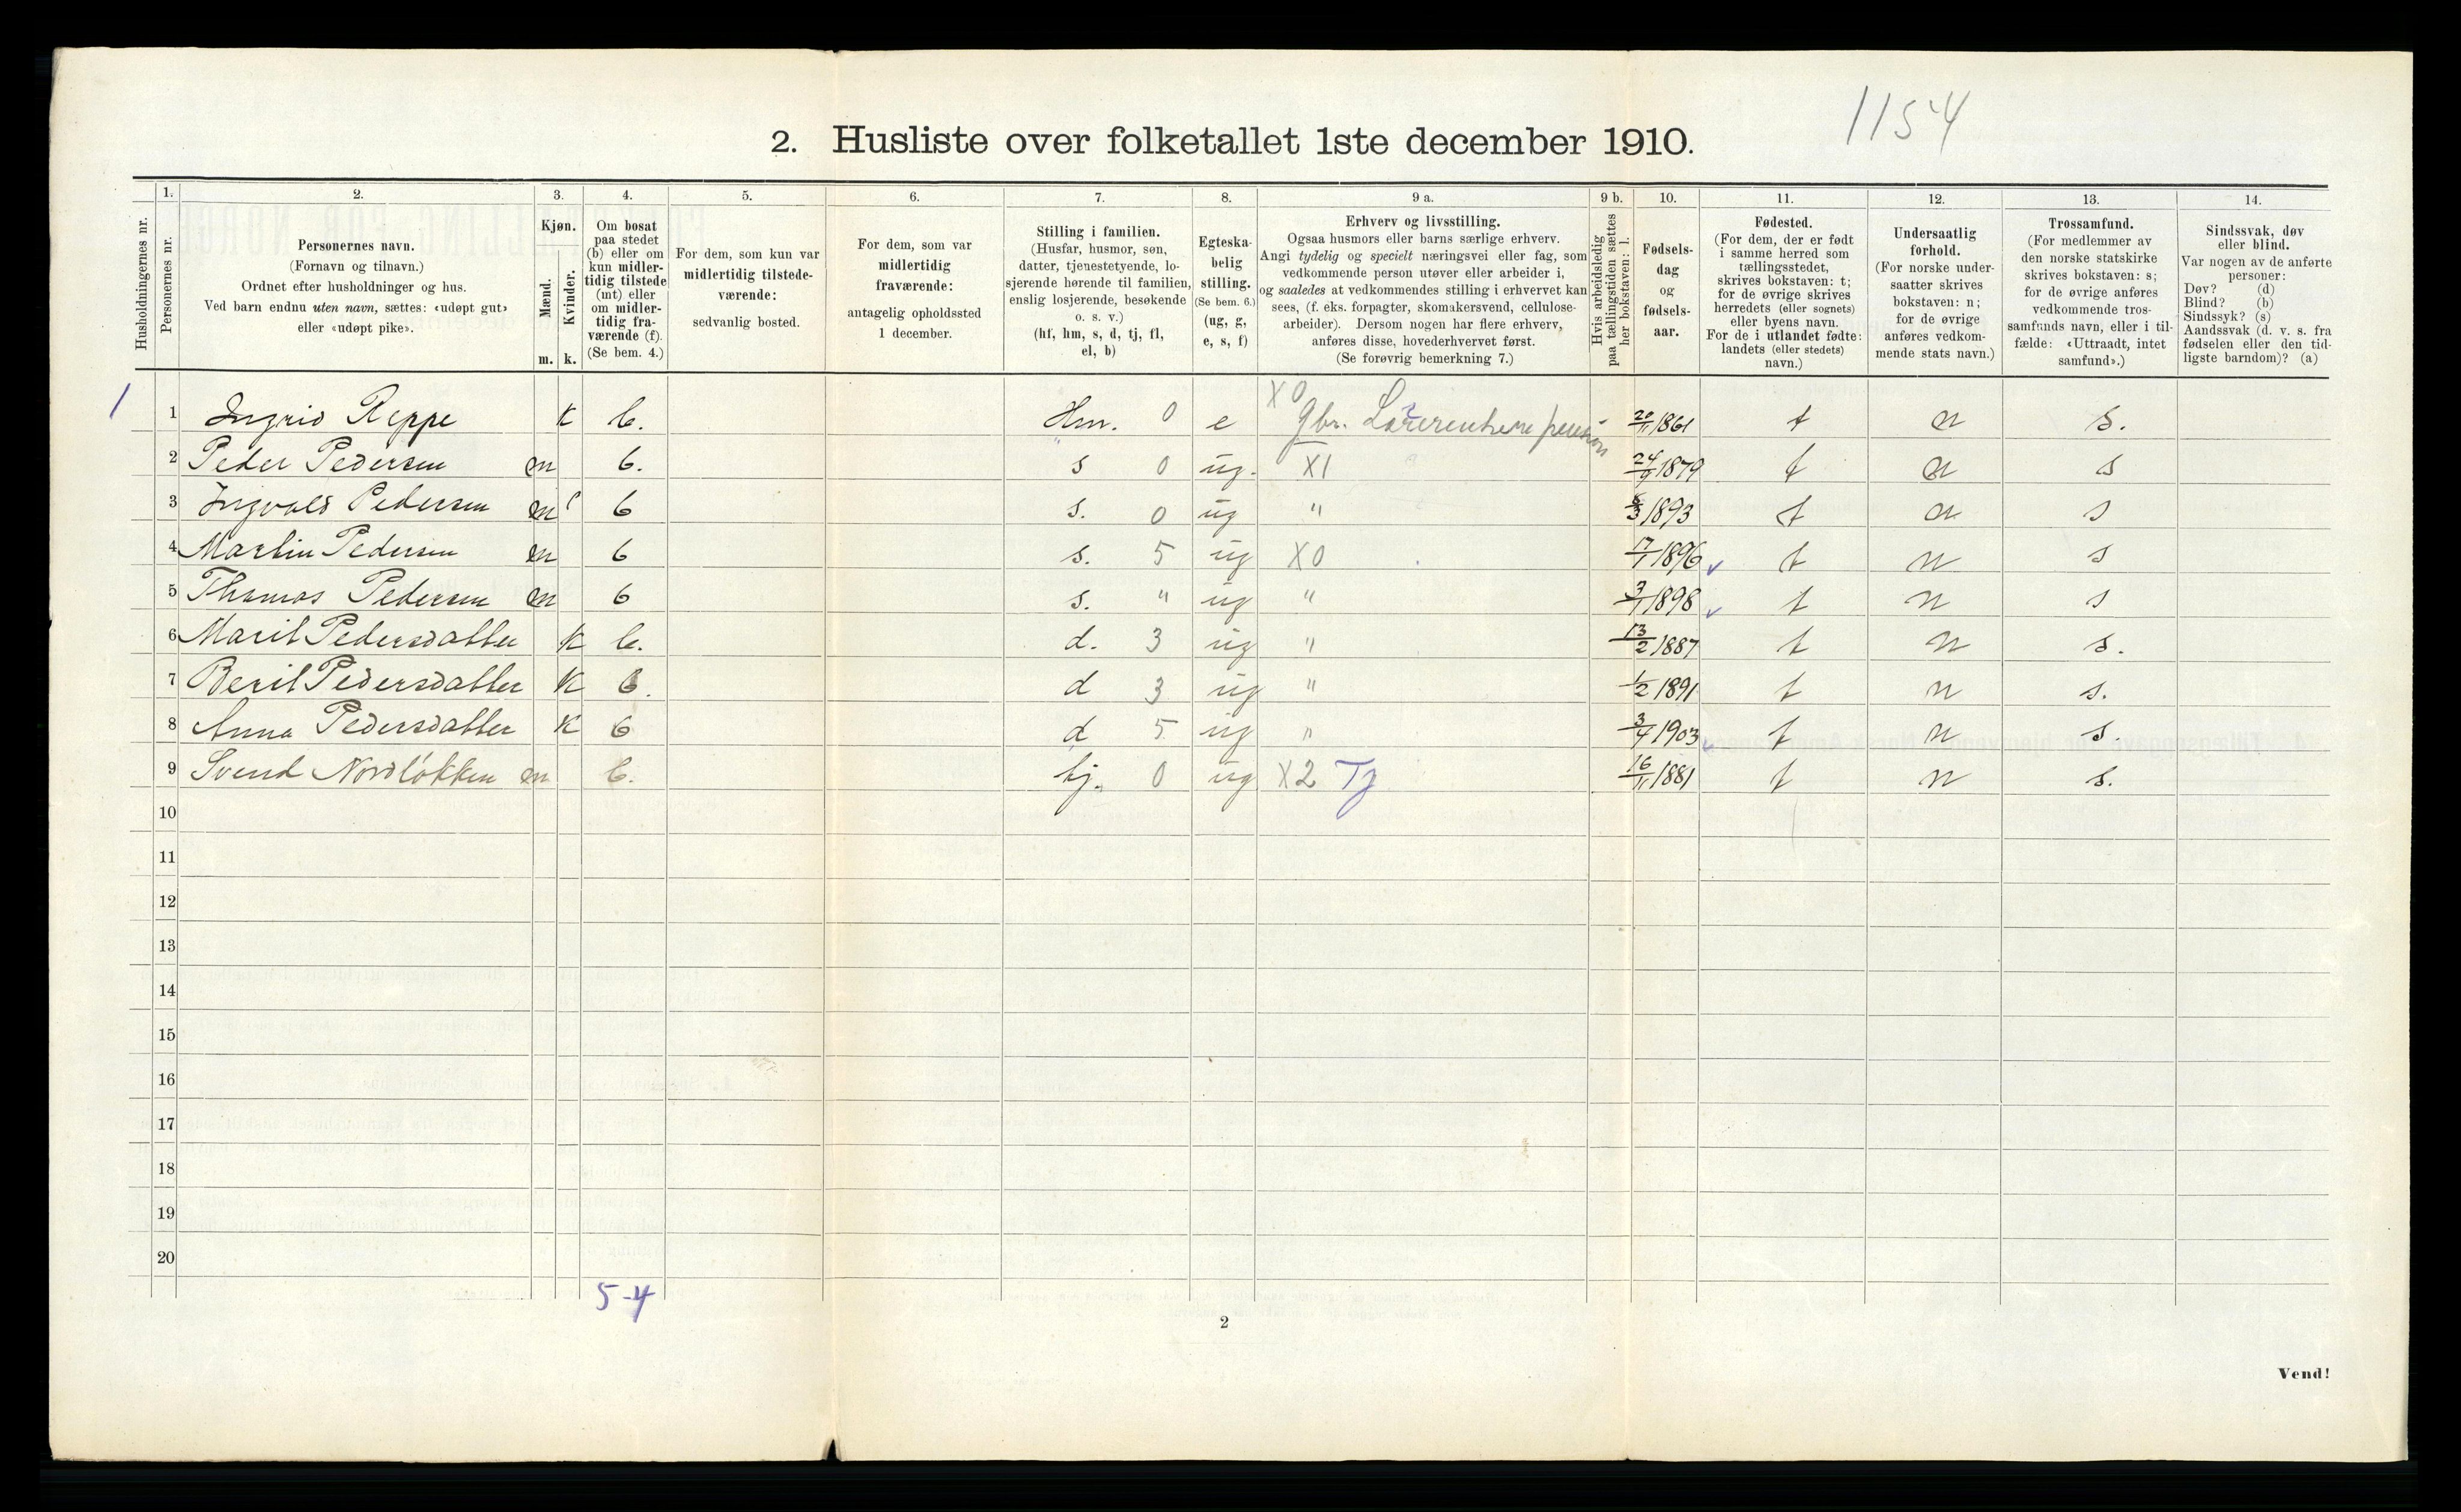 1154
2. Husliste over folketallet 1ste december 1910.
Husholdningernes nr.
1.
Personernes nr.
2.
Personernes navn.
(Fornavn og tilnavn.)
Ordnet efter husholdninger og hus.
Ved barn endnu uten navn, sættes: «udøpt gut»
eller «udøpt pike».
3.
Kjøn.
Mænd.
Kvinder.
m. k.
4.
Om bosat
paa stedet
(b) eller om
kun midler-
tidig tilstede
(mt) eller
om midler-
tidig fra-
værende (f).
(Se bem. 4.)
5.
For dem, som kun var
midlertidig tilstede-
værende:
sedvanlig bosted.
6.
For dem, som var
midlertidig
fraværende:
antagelig opholdssted
1 december.
7.
Stilling i familien.
(Husfar, husmor, søn,
datter, tjenestetyende, lo-
sjerende hørende til familien,
enslig losjerende, besøkende
o. s. v.)
(hf, hm, s, d, tj, fl,
el, b)
8.
Egteska-
belig
stilling.
(Se bem. 6.)
(ug, g,
e, s, f)
9 a.
Erhverv og livsstilling.
Ogsaa husmors eller barns særlige erhverv.
Angi tydelig og specielt næringsvei eller fag, som
vedkommende person utøver eller arbeider i,
og saaledes at vedkommendes stilling i erhvervet kan
sees, (f. eks. forpagter, skomakersvend, cellulose-
arbeider). Dersom nogen har flere erhverv,
anføres disse, hovederhvervet først.
(Se forøvrig bemerkning 7.)
9 b.
Hvis arbeidsledig
paa tællingstiden sættes
her bokstaven: l.
10.
Fødsels-
dag
og
fødsels-
aar.
11.
Fødested.
(For dem, der er født
i samme herred som
tællingsstedet,
skrives bokstaven: t;
for de øvrige skrives
herredets (eller sognets)
eller byens navn.
For de i utlandet fødte:
landets (eller stedets)
navn.)
12.
Undersaatlig
forhold.
(For norske under-
saatter skrives
bokstaven: n;
for de øvrige
anføres vedkom-
mende stats navn.)
13.
Trossamfund.
(For medlemmer av
den norske statskirke
skrives bokstaven: s;
for de øvrige anføres
vedkommende tros-
samfunds navn, eller i til-
fælde: «Uttraadt, intet
samfund».)
14.
Sindssvak, døv
eller blind.
Var nogen av de anførte
personer:
Døv? (d)
Blind? (b)
Sindssyk? (s)
Aandssvak (d. v. s. fra
fødselen eller den tid-
ligste barndom)? (a)
1 1 Ingrid Reppe k b. Hm. 0 e X0 Gbr. 20/11 1861 t n s.
2 Peder Pedersen m b. s 0 ug. X1 1879 t n s
3 Ingvald Pedersen m b s. 0 ug " 8/3 1893 t n s
4 Martin Pedersen m b s. 5 ug X0 17/1 1896 t n s
5 Thomas Pedersen m b s. " ug " 3/1 1898 t n s
6 Marit Pedersdatter k b. d. 3 ug " 13/2 1887 t n s.
7 Berit Pedersdatter k b. d 3 ug " 1/2 1891 t n s.
8 Anna Pedersdatter k b d 5 ug " 3/4 1903 t n s.
9 Svend Nordløkken m b. tj. 0 ug X2 Tj 16/11 1881 t n s.
10
11
12
13
14
15
16
17
18
19
20
5-4
2
Vend!